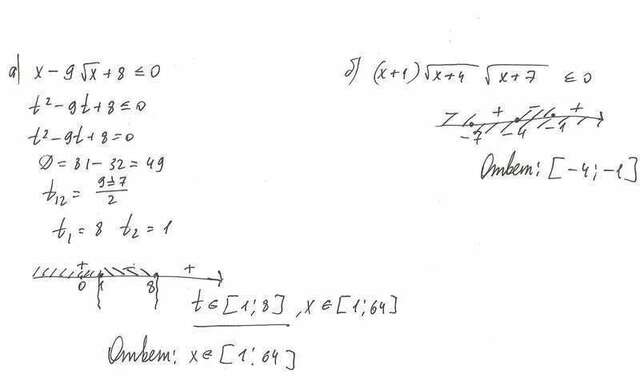 а) x - 9√x + 8 ≤ 0
t² - 9t + 8 ≤ 0
t² - 9t + 8 = 0
D = 81 - 32 = 49
t₁₂ = (9±7)/2
t₁ = 8 t₂ = 1
+ - +
0 1 8
t ∈ [1; 8], x ∈ [1; 64]
Ответ: x ∈ [1; 64]
б) (x+1)√x+4 √x+7 ≤ 0
- + - +
-7 -4 -1
Ответ: [-4; -1]